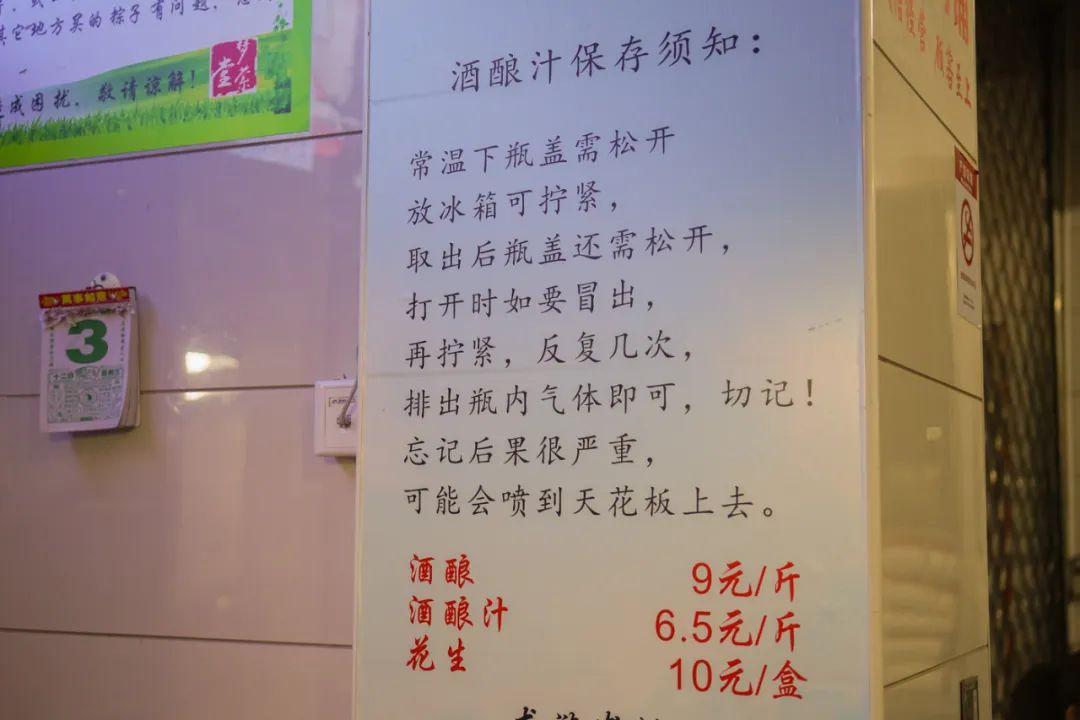 其它地方买的粽子有问题,
成困扰,敬请谅解!
酒酿汁保存须知:
常温下瓶盖需松开
放冰箱可拧紧,
取出后瓶盖还需松开,
打开时如要冒出,
再拧紧,反复几次,
排出瓶内气体即可,切记!
忘记后果很严重,
可能会喷到天花板上去。
酒酿 9元/斤
酒酿汁 6.5元/斤
花生 10元/盒
萬事如意
3
顾客至上